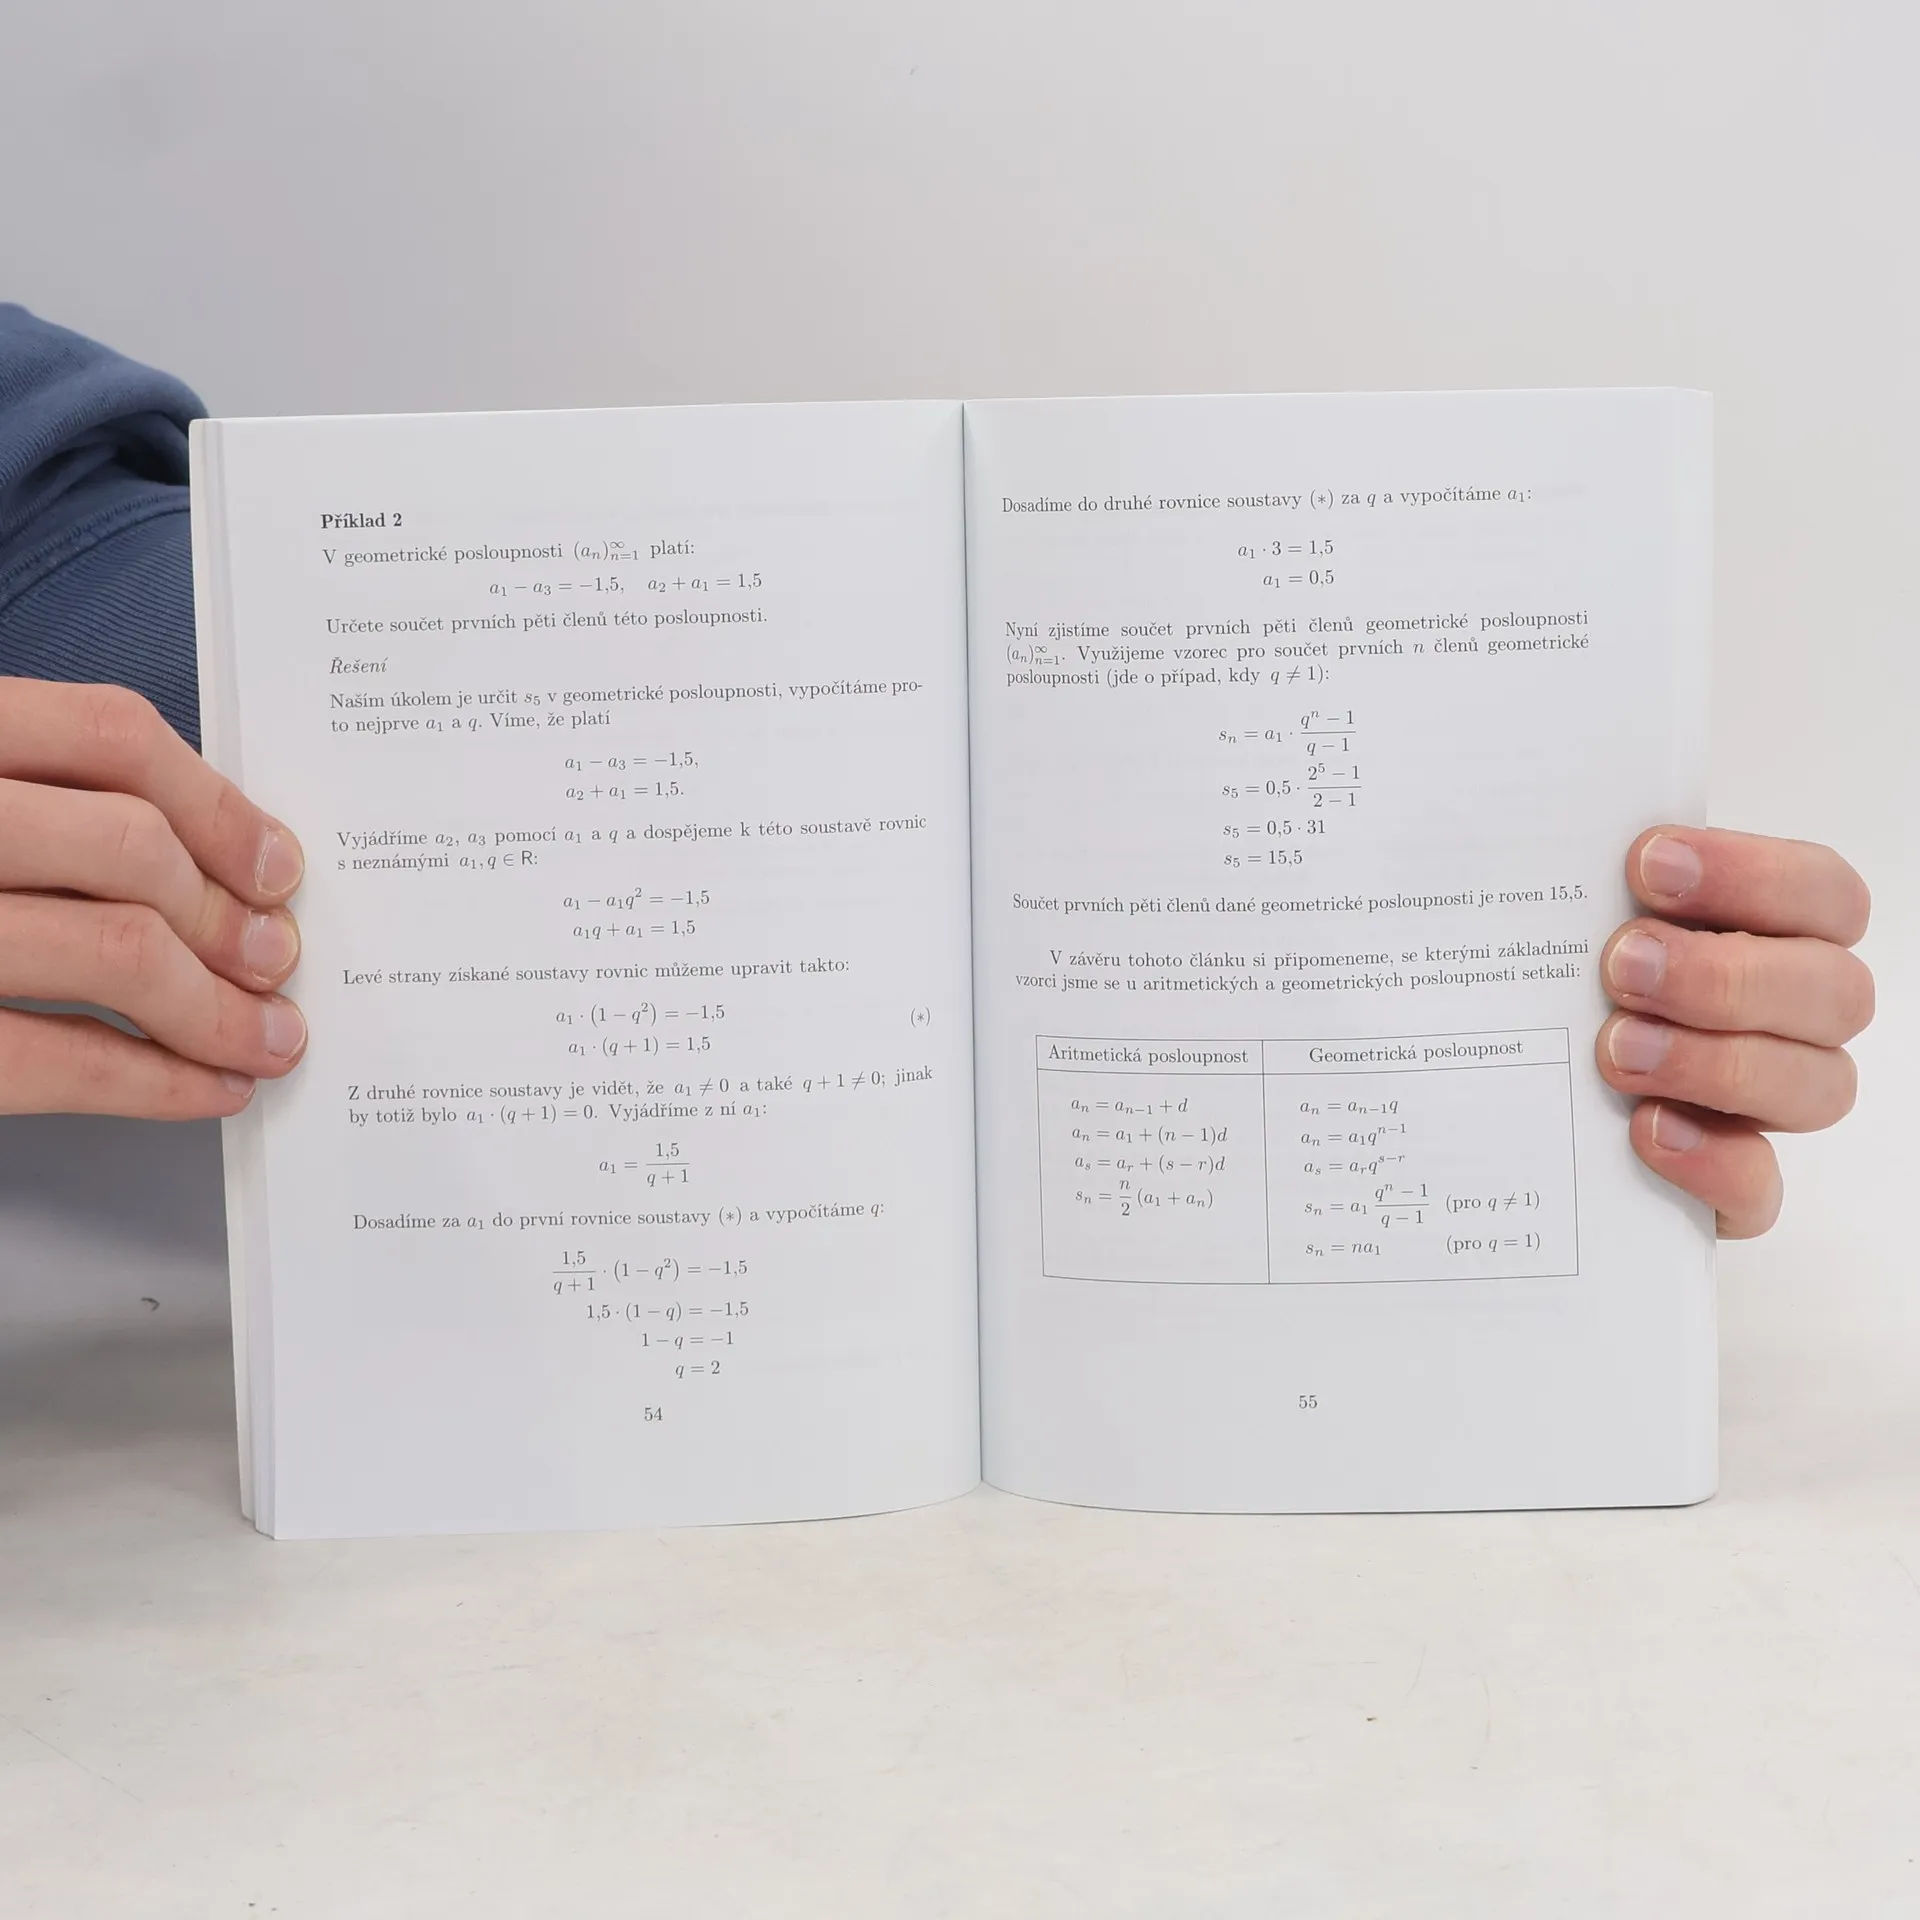 Příklad 2
V geometrické posloupnosti (aₙ)ₙ₌₁^∞ platí:
a₁ − a₃ = −1,5, a₂ + a₁ = 1,5
Určete součet prvních pěti členů této posloupnosti.
Řešení
Naším úkolem je určit s₅ v geometrické posloupnosti, vypočítáme pro-
to nejprve a₁ a q. Víme, že platí
a₁ − a₃ = −1,5,
a₂ + a₁ = 1,5.
Vyjádříme a₂, a₃ pomocí a₁ a q a dospějeme k této soustavě rovnic
s neznámými a₁, q ∈ R:
a₁ − a₁q² = −1,5
a₁q + a₁ = 1,5
Levé strany získané soustavy rovnic můžeme upravit takto:
a₁ · (1 − q²) = −1,5 (∗)
a₁ · (q + 1) = 1,5
Z druhé rovnice soustavy je vidět, že a₁ ≠ 0 a také q + 1 ≠ 0; jinak
by totiž bylo a₁ · (q + 1) = 0. Vyjádříme z ní a₁:
a₁ = 1,5 / (q + 1)
Dosadíme za a₁ do první rovnice soustavy (∗) a vypočítáme q:
1,5 / (q + 1) · (1 − q²) = −1,5
1,5 · (1 − q) = −1,5
1 − q = −1
q = 2
54
Dosadíme do druhé rovnice soustavy (∗) za q a vypočítáme a₁:
a₁ · 3 = 1,5
a₁ = 0,5
Nyní zjistíme součet prvních pěti členů geometrické posloupnosti
(aₙ)ₙ₌₁^∞. Využijeme vzorec pro součet prvních n členů geometrické
posloupnosti (jde o případ, kdy q ≠ 1):
sₙ = a₁ · (qⁿ − 1) / (q − 1)
s₅ = 0,5 · (2⁵ − 1) / (2 − 1)
s₅ = 0,5 · 31
s₅ = 15,5
Součet prvních pěti členů dané geometrické posloupnosti je roven 15,5.
V závěru tohoto článku si připomeneme, se kterými základními
vzorci jsme se u aritmetických a geometrických posloupností setkali:
Aritmetická posloupnost Geometrická posloupnost
aₙ = aₙ₋₁ + d aₙ = aₙ₋₁q
aₙ = a₁ + (n − 1)d aₙ = a₁qⁿ⁻¹
aₛ = aᵣ + (s − r)d aₛ = aᵣqˢ⁻ʳ
sₙ = n/2 (a₁ + aₙ) sₙ = a₁ (qⁿ − 1) / (q − 1) (pro q ≠ 1)
sₙ = na₁ (pro q = 1)
55